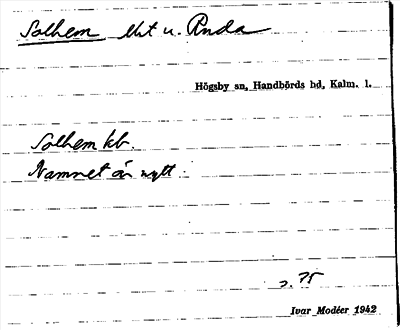 Solhem lht u. Ruda
Högsby sn, Handbörds hd, Kalm. l.
Solhem kb.
Namnet är nytt.
s. 75
Ivar Modéer 1942